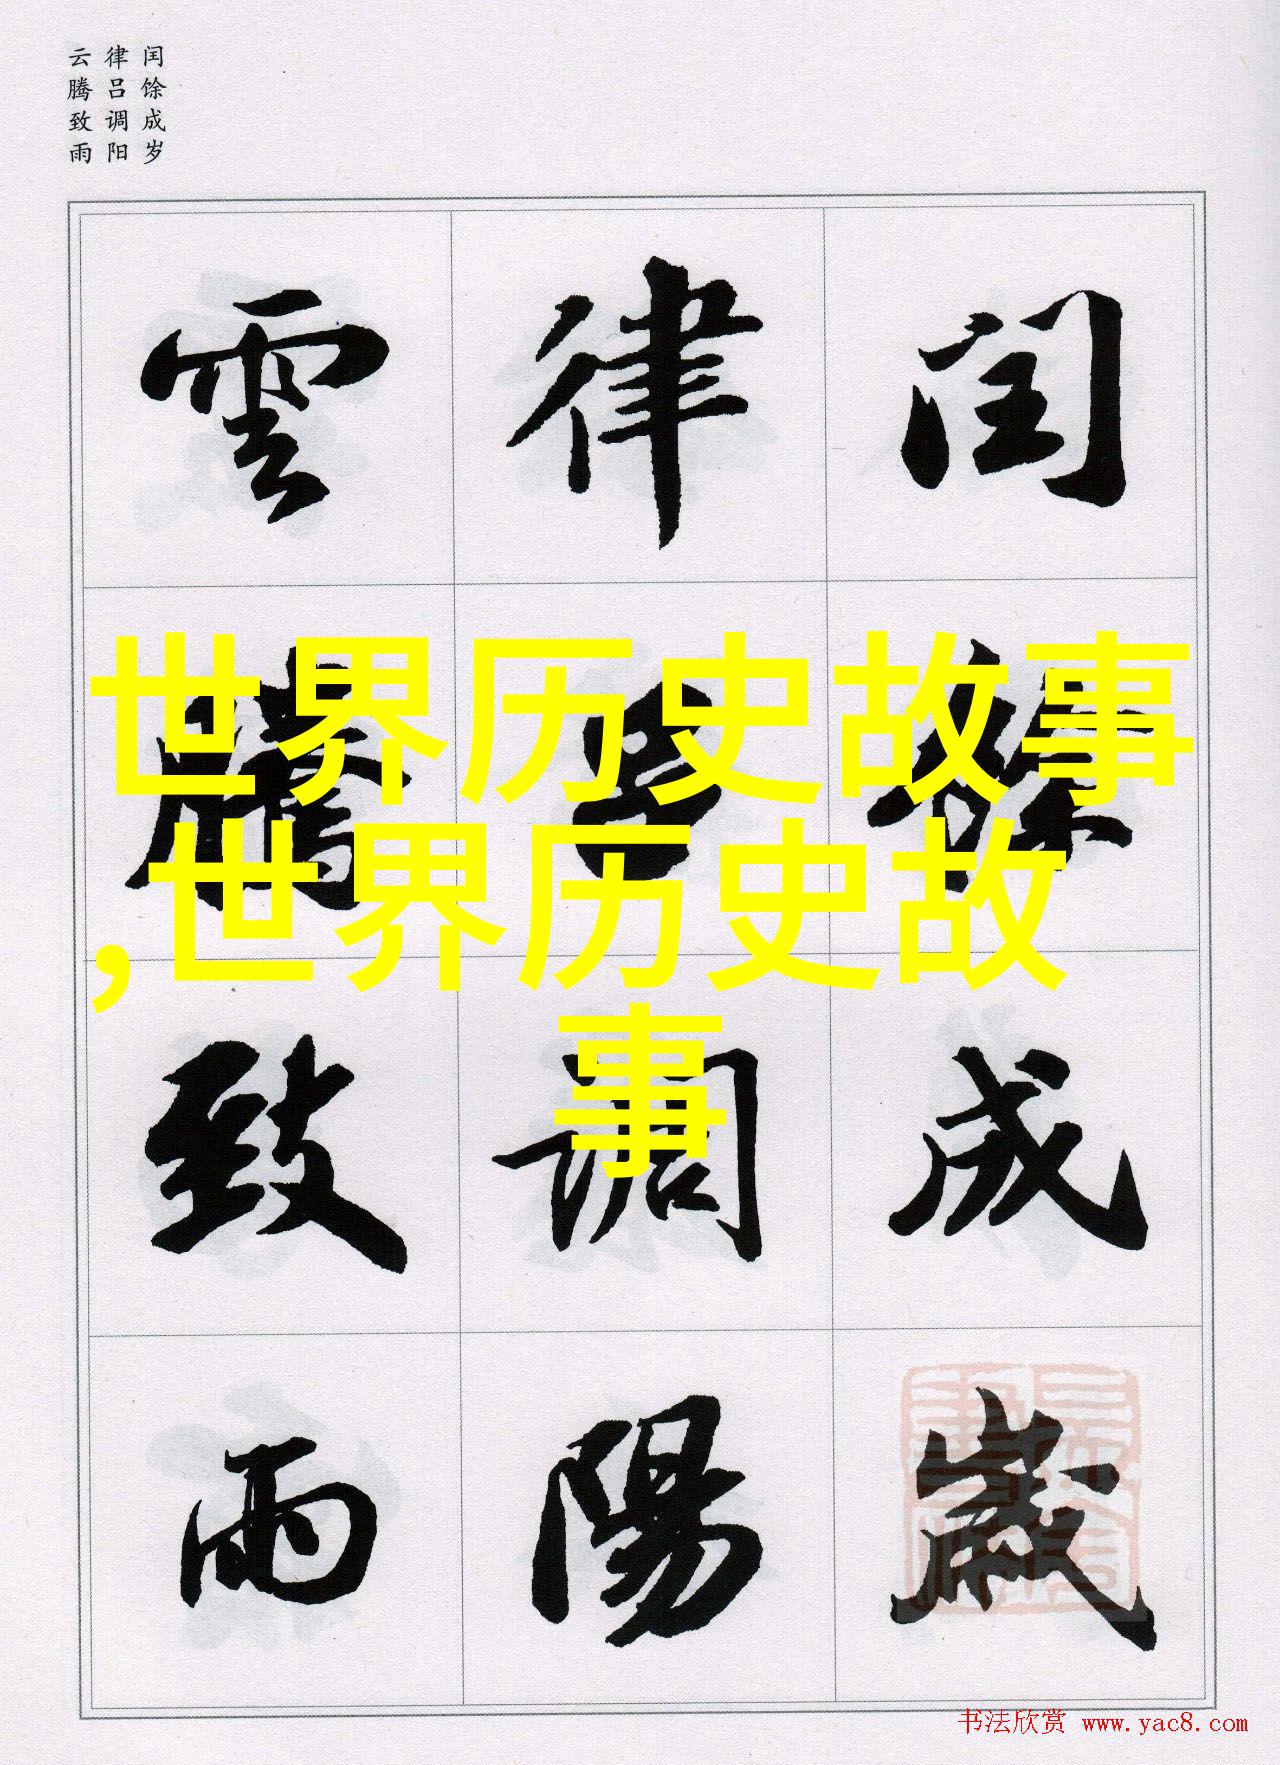 闰馀成岁
律吕调阳
云腾致雨
闰馀成歲
律吕调陽
雲腾致雨
世界历史故事
,世界历史故
事
书法欣赏 www.yac8.com